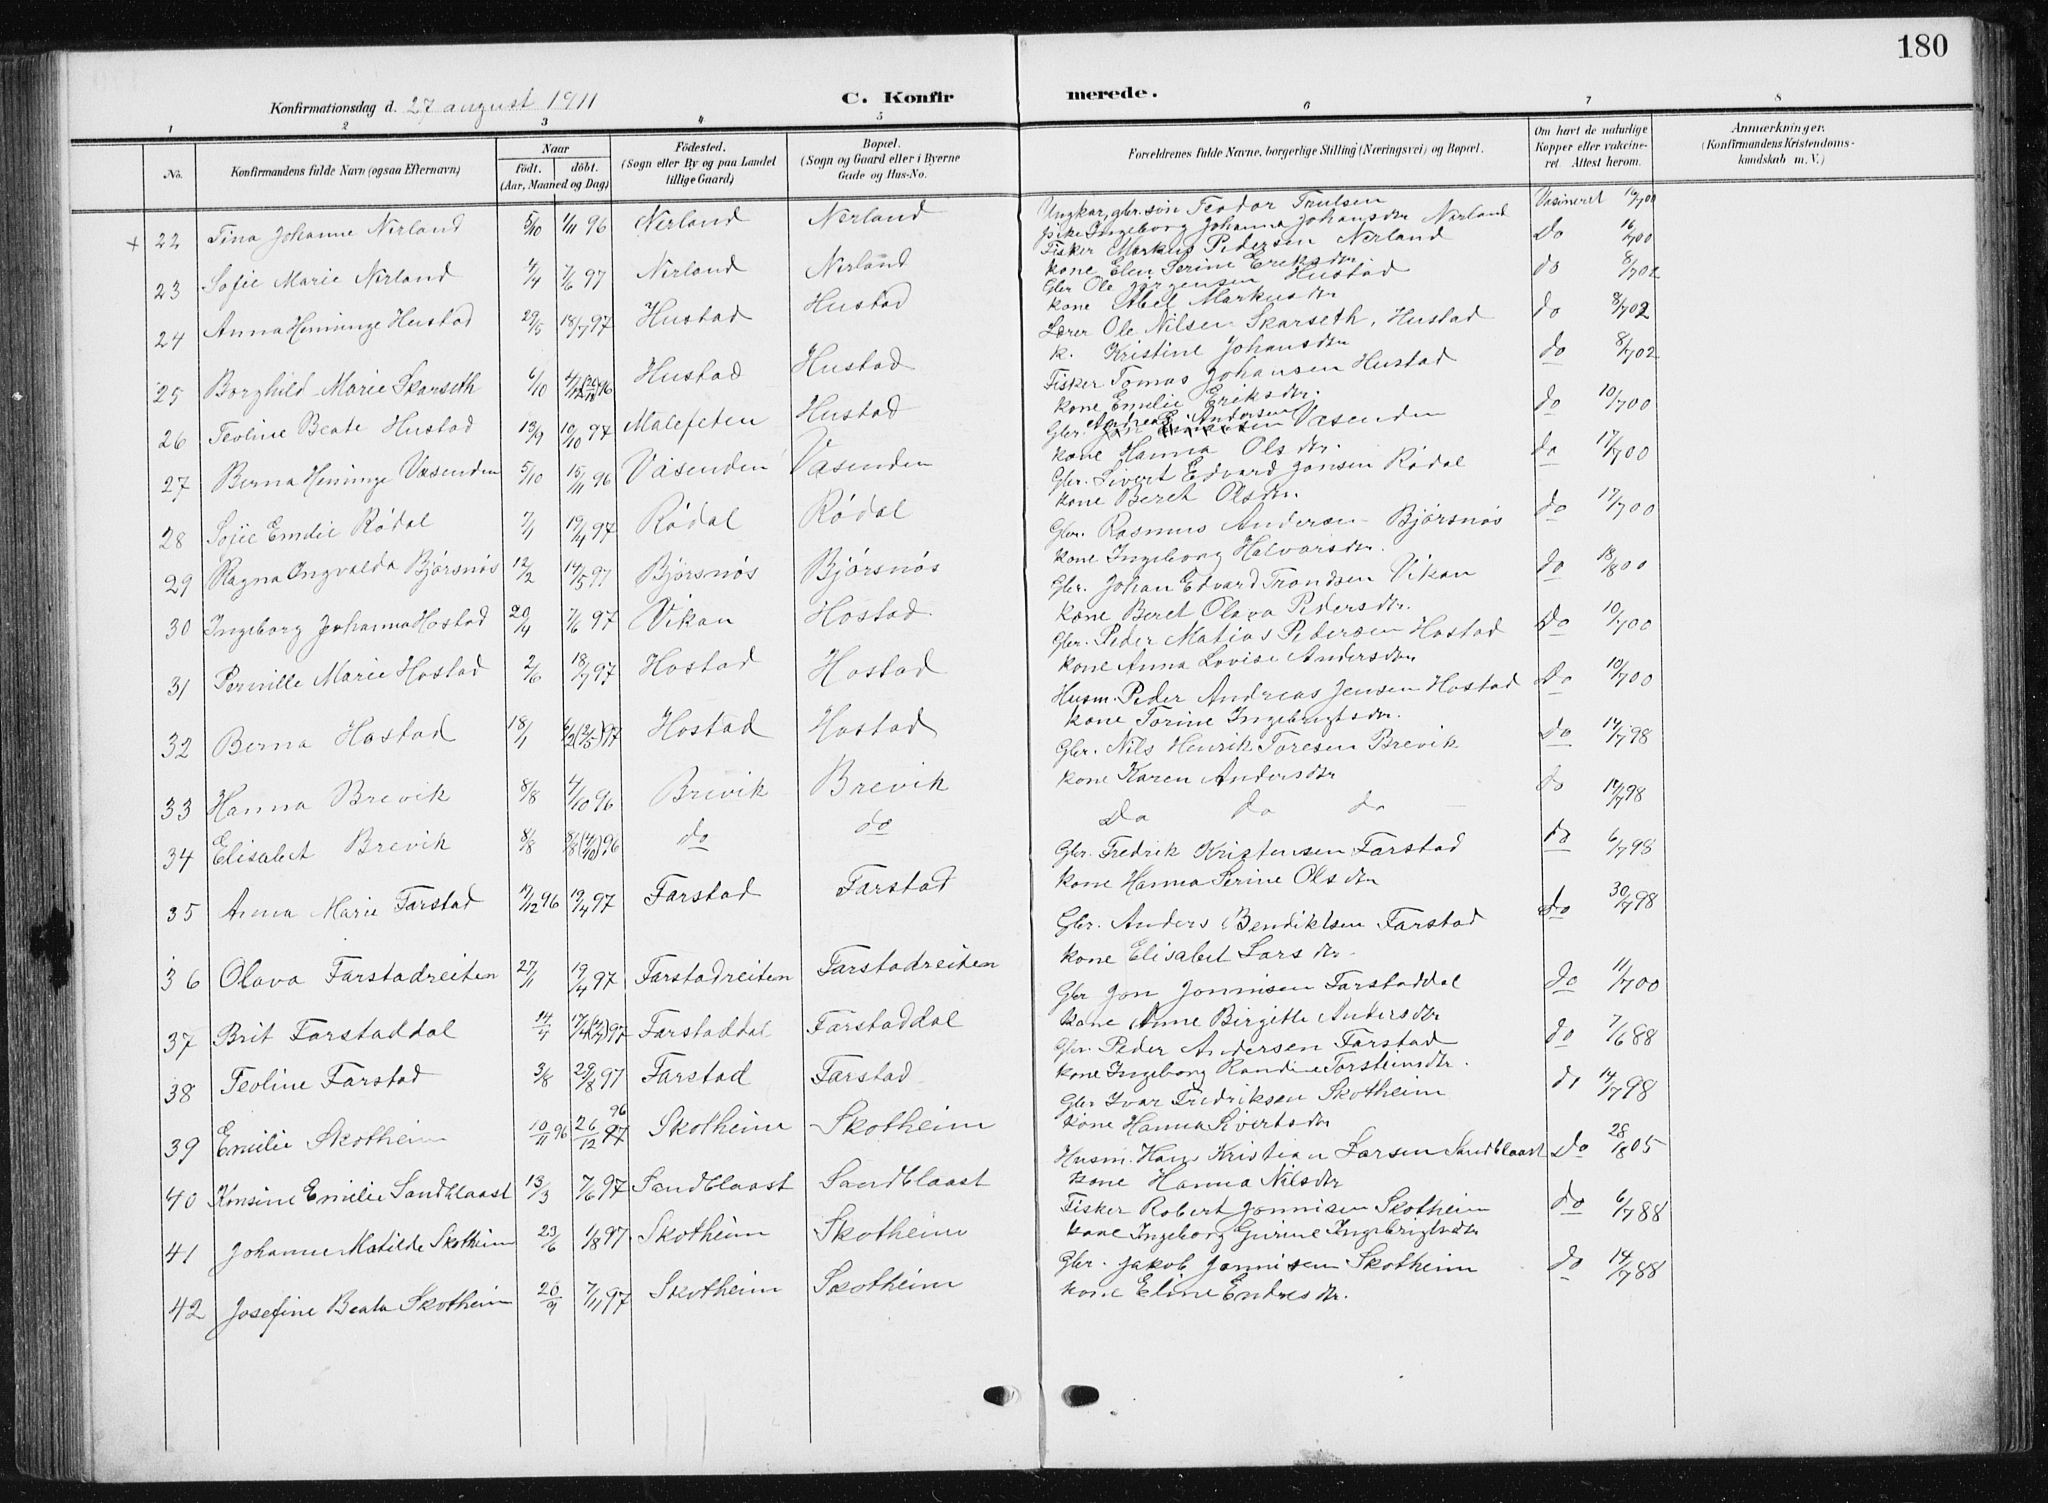 180
Konfirmationsdag d. 27 august 1911
C. Konfirmerede.
1 2 3 4 5 6 7 8
No.
Konfirmandens fulde Navn (ogsaa Efternavn)
Naar
födt. döbt.
(Aar, Maaned og Dag)
Födested.
(Sogn eller By og paa Landet tillige Gaard)
Bopæl.
(Sogn og Gaard eller i Byerne Gade og Hus-No.
Forældrenes fulde Navne, borgerlige Stilling (Næringsvei) og Bopæl.
Om havt de naturlige Kopper eller vakcineret. Attest herom.
Anmærkninger.
(Konfirmandens Kristendomskundskab m. V.)
+ 22 Tina Johanne Nerland 5/10 1/11 96 Nerland Nerland Ungkar, gbr. søn Teodor Trulsen Vasineret 16/7 00
pike Ingeborg Johanna Johansdtr Nerland
23 Sofie Marie Nerland 4/4 7/6 97 Nerland Nerland Fisker Markus Pedersen Nerland Do 16/7 00
kone Elen Serine Eriksdtr.
24 Anna Henninge Hustad 29/5 18/7 97 Hustad Hustad Gbr Ole Jørgensen Hustad do 8/7 02
kone Abel Markusdtr
25 Borghild Marie Skarseth 6/10 Hustad Hustad Lærer Ole Nilsen Skarseth, Hustad do 8/7 02
k. Kristine Johansdtr
26 Teoline Beate Hustad 13/9 10/10 97 Malefeten Hustad Fisker Tomas Johansen Hustad do 8/7 02
kone Emelie Eriksdtr.
27 Berna Henninge Vasenden 5/10 15/11 96 Vasenden Vasenden Gbr. Andreas Andersen Vasenden do 10/7 00
kone Hanna Olsdtr.
28 Sofie Emelie Rødal 7/1 19/4 97 Rødal Rødal Gbr. Sivert Edvard Jonsen Rødal do 17/7 00
kone Beret Olsdtr.
29 Ragna Ingvalda Bjørsnøs 12/2 14/5 97 Bjørsnøs Bjørsnøs Gbr. Rasmus Andersen Bjørsnøs do 17/7 00
kone Ingeborg Halvorsdtr.
30 Ingeborg Johanna Hostad 20/4 7/6 97 Vikan Hostad Gbr. Johan Edvard Trondsen Vikan do 18/8 00
kone Beret Olava Pedersdtr.
31 Pernille Marie Hostad 2/6 18/7 97 Hostad Hostad Gbr. Peder Matias Pedersen Hostad Do 10/7 00
kone Anna Lovise Andersdtr
32 Berna Hostad 18/1 Hostad Hostad Husm. Peder Andreas Jensen Hostad Do 10/7 00
kone Torine Ingebrigtsdtr.
33 Hanna Brevik 8/8 4/10 96 Brevik Brevik Gbr. Nils Henrik Toresen Brevik Do 14/7 98
kone Karen Andersdtr
34 Elisabet Brevik 8/8 8/8 (4/10) 96 do do Do do do do 14/7 98
35 Anna Marie Farstad 17/12 96 19/4 97 Farstad Farstad Gbr. Fredrik Kristensen Farstad do 6/7 98
kone Hanna Serine Olsdtr
36 Olava Farstadreiten 27/1 19/4 97 Farstadreiten Farstadreiten Gbr. Anders Bendiktsen Farstad Do 30/7 98
kone Elisabet Larsdtr.
37 Brit Farstaddal 14/4 Farstaddal Farstaddal Gbr Jon Jonnisen Farstaddal do 11/7 00
kone Anne Birgitte Andersdtr
38 Teoline Farstad 3/8 29/8 97 Farstad Farstad Gbr. Peder Andersen Farstad do 7/6 88
kone Ingeborg Randine Torsteinsdtr.
39 Emilie Skotheim 10/11 96 26/12 97 96 Skotheim Skotheim Gbr Ivar Fredriksen Skotheim do 14/7 98
kone Hanna Sivertsdtr
40 Konsine Emelie Sandblaast 13/3 7/6 97 Sandblaast Sandblaast Husm. Hans Kristian Larsen Sandblaast Do 28/8 05
kone Hanna Nilsdtr
41 Johanne Matilde Skotheim 23/6 1/8 97 Skotheim Skotheim Fisker Robert Jonnisen Skotheim do 6/7 88
kone Ingeborg Gurine Ingebrigtsdtr
42 Josefine Beata Skotheim 20/9 7/11 97 Skotheim Skotheim Gbr. Jakob Jonnisen Skotheim do 14/7 88
kone Eline Endresdtr.